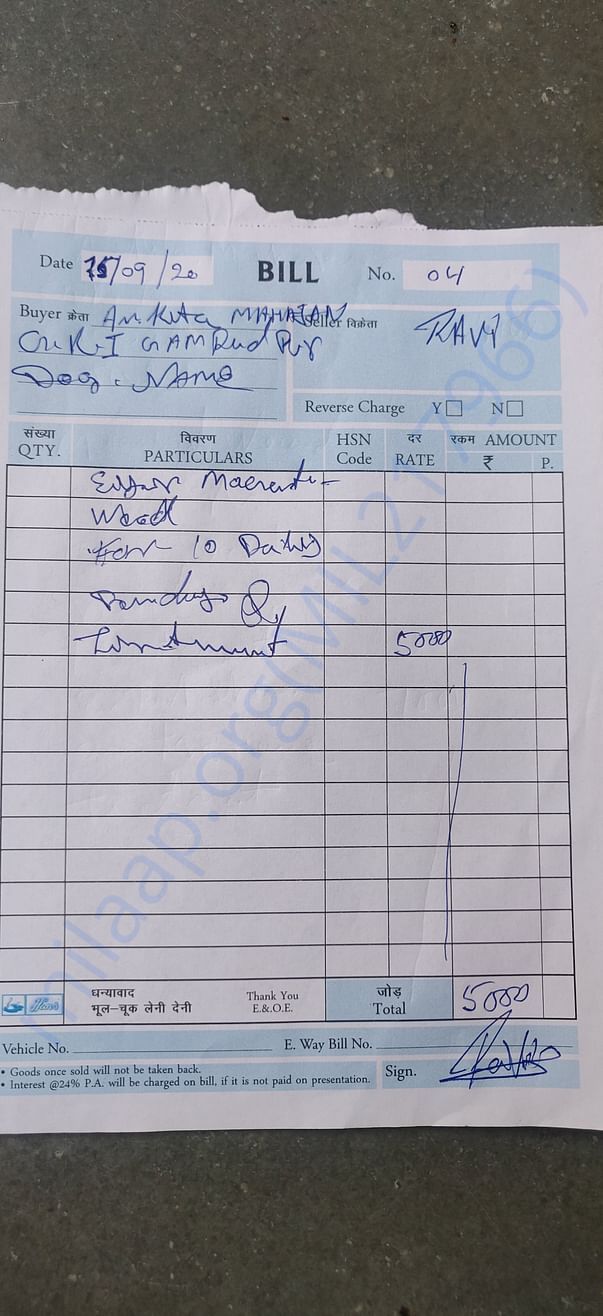 Date 15/09/20 BILL No. 04
Buyer क्रेता Ankita MAHAJAN Seller विक्रेता RAVI
Dog. Name
Reverse Charge Y N
संख्या विवरण HSN दर रकम AMOUNT
QTY. PARTICULARS Code RATE ₹ P.
For 10 Daily
5000
धन्यवाद Thank You जोड़
भूल-चूक लेनी देनी E.&.O.E. Total 5000
Vehicle No. E. Way Bill No.
• Goods once sold will not be taken back.
• Interest @24% P.A. will be charged on bill, if it is not paid on presentation. Sign.
milaap.org(MIL217966)